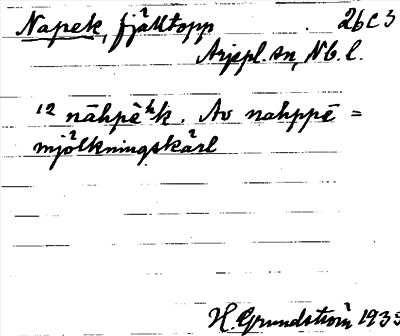 Napek, fjälltopp 26C3
Arjepl. sn, Nb. l.
12 nāhpēʰk. Av nahppē =
mjölkningskärl
H. Grundström 1935